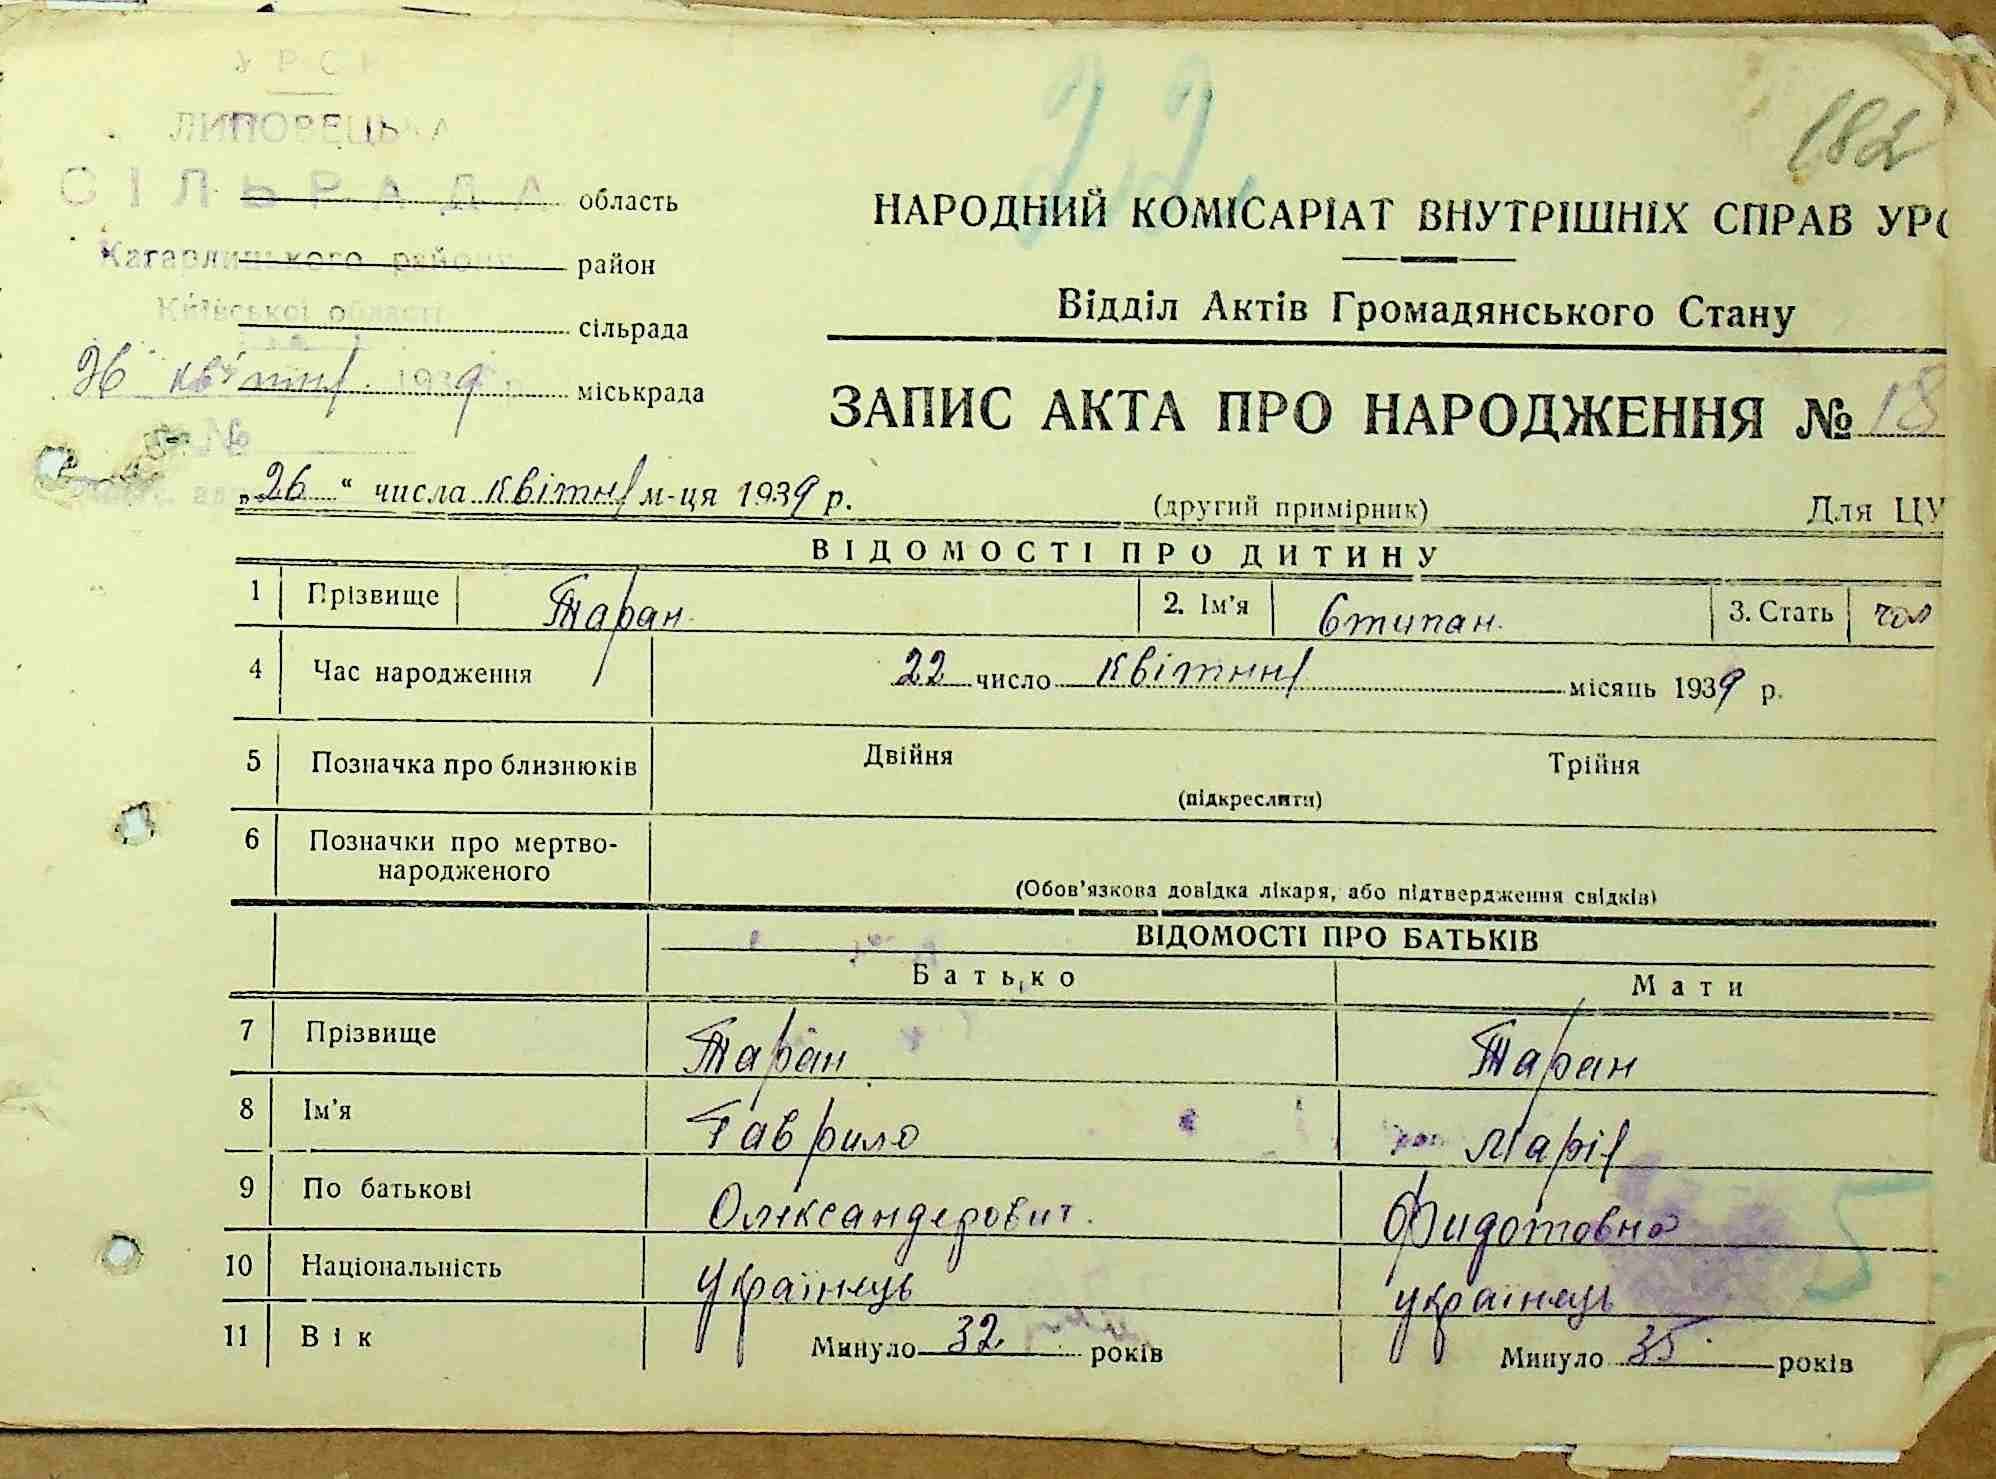 УРСР
ЛИПОВЕЦЬКА
СІЛЬРАДА
Кагарлицького району
Київської області
26 квітня 1939 р.
№
область
район
сільрада
міськрада
22.
182
НАРОДНИЙ КОМІСАРІАТ ВНУТРІШНІХ СПРАВ УРС
Відділ Актів Громадянського Стану
ЗАПИС АКТА ПРО НАРОДЖЕННЯ № 18
„26“ числа квітня м-ця 1939 р.
(другий примірник)
Для ЦУ
ВІДОМОСТІ ПРО ДИТИНУ
1 Прізвище Таран 2. Ім'я Стипан 3. Стать чол
4 Час народження 22 число квітня місяць 1939 р.
5 Позначка про близнюків Двійня Трійня
(підкреслити)
6 Позначки про мертво-
народженого
(Обов'язкова довідка лікаря, або підтвердження свідків)
ВІДОМОСТІ ПРО БАТЬКІВ
Батько Мати
7 Прізвище Таран Таран
8 Ім'я Гаврило Марія
9 По батькові Олександерович Фидотовна
10 Національність українець українець
11 Вік Минуло 32 років Минуло 35 років
5